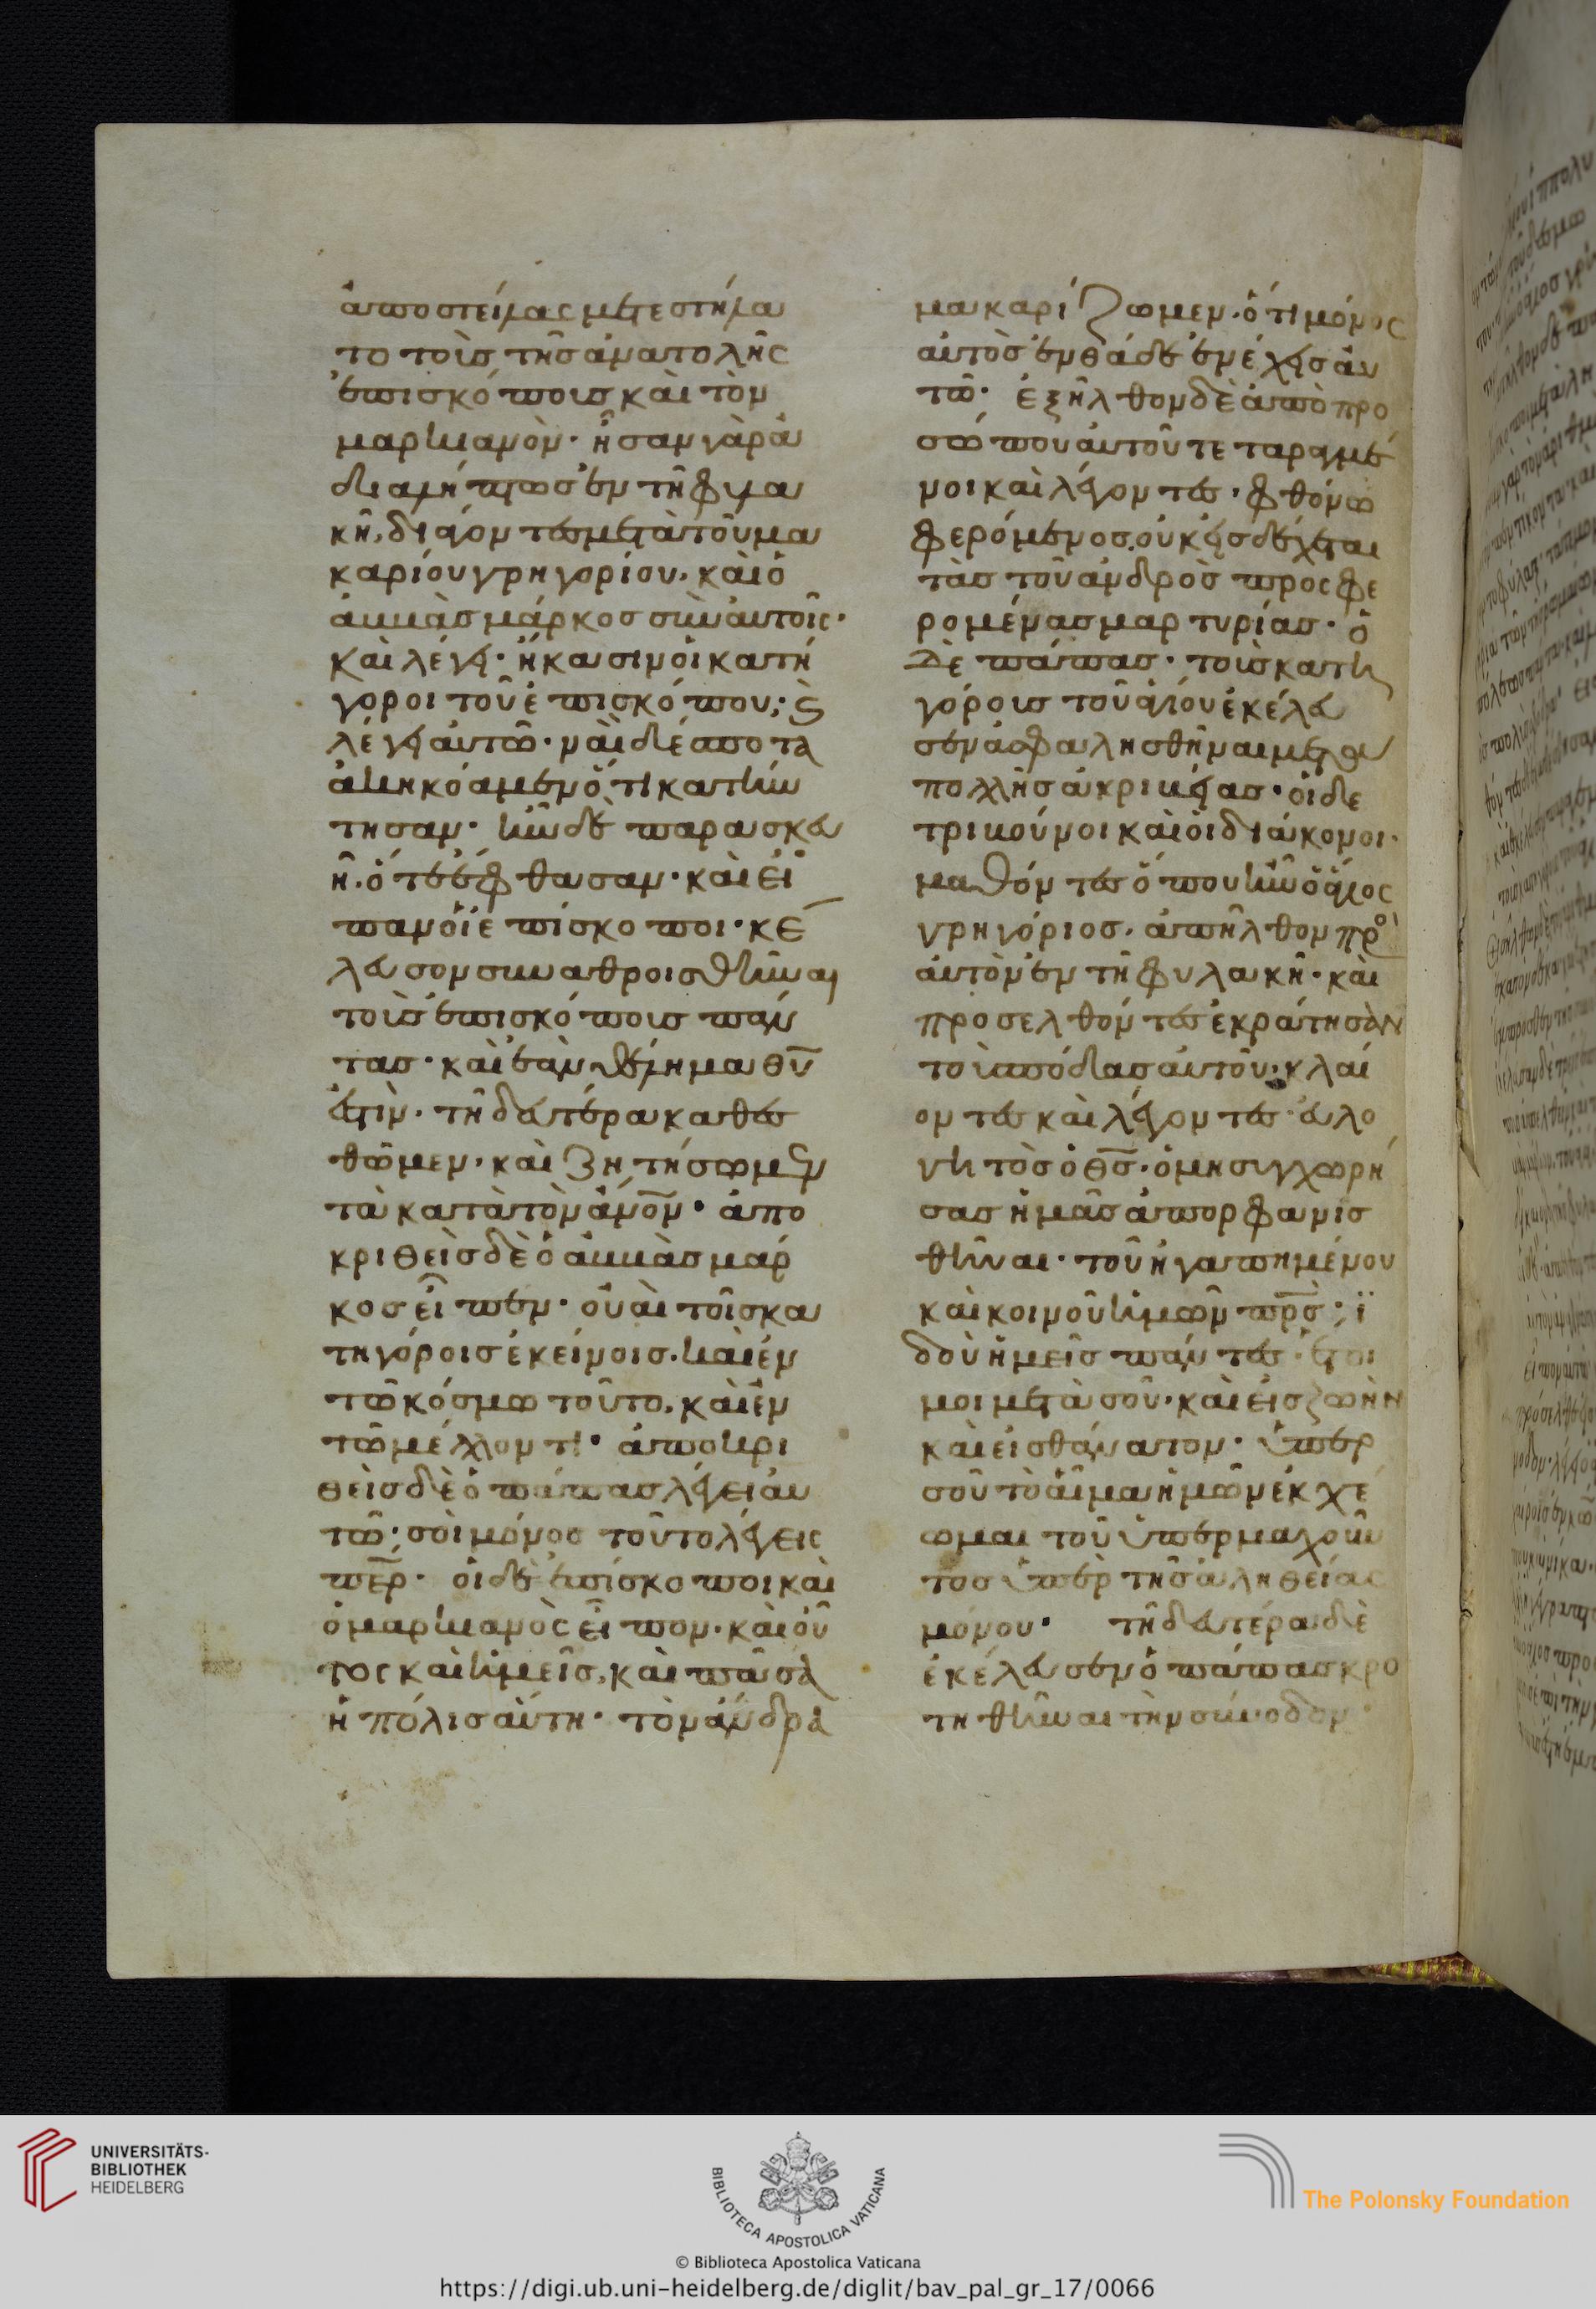 ἀποστείλας μετεστήλα
το τοῖς τῆς ἀνατολῆς
ἐπισκόποις καὶ τὸν
μαρκιανὸν· ἦσαν γὰρ ἀ
διαλήπτως ἐν τῇ φυλα
κῇ, διάγοντες μετὰ τοῦ μα
καρίου γρηγορίου· καὶ ὁ
ἀββᾶς μάρκος σὺν αὐτοῖς·
καὶ λέγει· ἤκασιν οἱ κατή
γοροι τοῦ ἐπισκόπου;
λέγει αὐτῶ· ναὶ δέσποτα
ἀκηκόαμεν ὅτι κατήν
τησαν· ἦν δὲ παρασκευ
ὴ, ὅτε ἔφθασαν· καὶ εἶ
παν οἱ ἐπίσκοποι· κέ
λευσον συναθροισθῆναι
τοὺς ἐπισκόπους πάν
τας· καὶ ἐὰν θέλημα θυ
ἐστὶν· τῇ δευτέρα καθεσ
θῶμεν· καὶ ζητήσωμεν
τὰ κατὰ τὸν ἀνον· ἀπο
κριθεὶς δὲ ὁ ἀββᾶς μάρ
κος εἶπεν· οὐαὶ τοῖς κα
τηγόροις ἐκείνοις· καὶ ἐν
τῶ κόσμω τοῦτο, καὶ ἐν
τῶ μέλλοντι· ἀποκρι
θεὶς δὲ ὁ πάπας λέγει αὐ
τῶ· σοὶ μόνος τοῦτο λέγεις
περ· οἱ δὲ ἐπίσκοποι καὶ
ὁ μαρκιανὸς εἶπον· καὶ οὗ
τος καὶ ἡμεῖς, καὶ πᾶσα
ἡ πόλις αὕτη· τὸν ἄνδρα
μακαρίζωμεν· ὅτι μόνος
αὐτὸς ἐνθάδε ἐνέχεις αὐ
τῶ· ἐξῆλθον δὲ ἀπὸ προ
σώπου αὐτοῦ τεταραγμέ
νοι καὶ λέγοντες· φθόνω
φερόμενος, οὐκ εἰσδέχεται
τὰς τοῦ ἀνδρὸς προσφε
ρομένας μαρτυρίας· ὁ
δὲ πάπας· τοὺς κατη
γόρους τοῦ ἁγίου ἐκέλευ
σεν ἀσφαλησθῆναι μετὰ
πολλῆς ἀκριβείας· οἱ δὲ
τριβοῦνοι καὶ οἱ διάκονοι·
μαθόντες ὅπου ἦν ὁ ἅγιος
γρηγόριος· ἀπῆλθον πρὸ
αὐτὸν ἐν τῇ φυλακῇ· καὶ
προσελθόντες ἐκράτησαν
τοὺς πόδας αὐτοῦ· κλαί
οντες καὶ λέγοντες· εὐλο
γητὸς ὁ θς· ὁ μὴ συγχωρή
σας ἡμᾶς ἀπορφανισ
θῆναι· τοῦ ἠγαπημένου
καὶ κοινοῦ ἡμῶν πρς· ἰ
δοὺ ἡμεῖς πάντες ἕτοι
μοι μετὰ σοῦ· καὶ εἰς ζωὴν
καὶ εἰς θάνατον· ὑπὲρ
σοῦ τὸ αἷμα ἡμῶν ἐκχέ
ωμαι τοῦ ὑπερμαχοῦν
τος ὑπὲρ τῆς ἀληθείας
μόνου· τῇ δευτέρα δὲ
ἐκέλευσεν ὁ πάπας κρο
τηθῆναι τὴν σύνοδον·
UNIVERSITÄTS-
BIBLIOTHEK
HEIDELBERG
BIBLIOTECA APOSTOLICA VATICANA
The Polonsky Foundation
© Biblioteca Apostolica Vaticana
https://digi.ub.uni-heidelberg.de/diglit/bav_pal_gr_17/0066